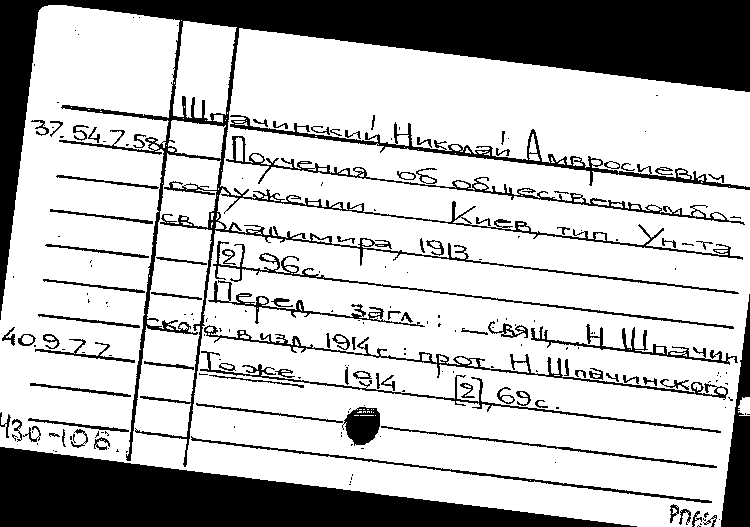 Шпачинский, Николай Амвросиевич
37.54.7.586 Поучения об общественном бо-
гослужении. Киев, тип. Ун-та
св. Владимира, 1913.
[2], 96 с.
Перед загл.: свящ. Н Шпачин
ского, в изд. 1914 г: прот. Н. Шпачинского.
40.9.77 То же. 1914. [2], 69 с.
430-106.
РП64